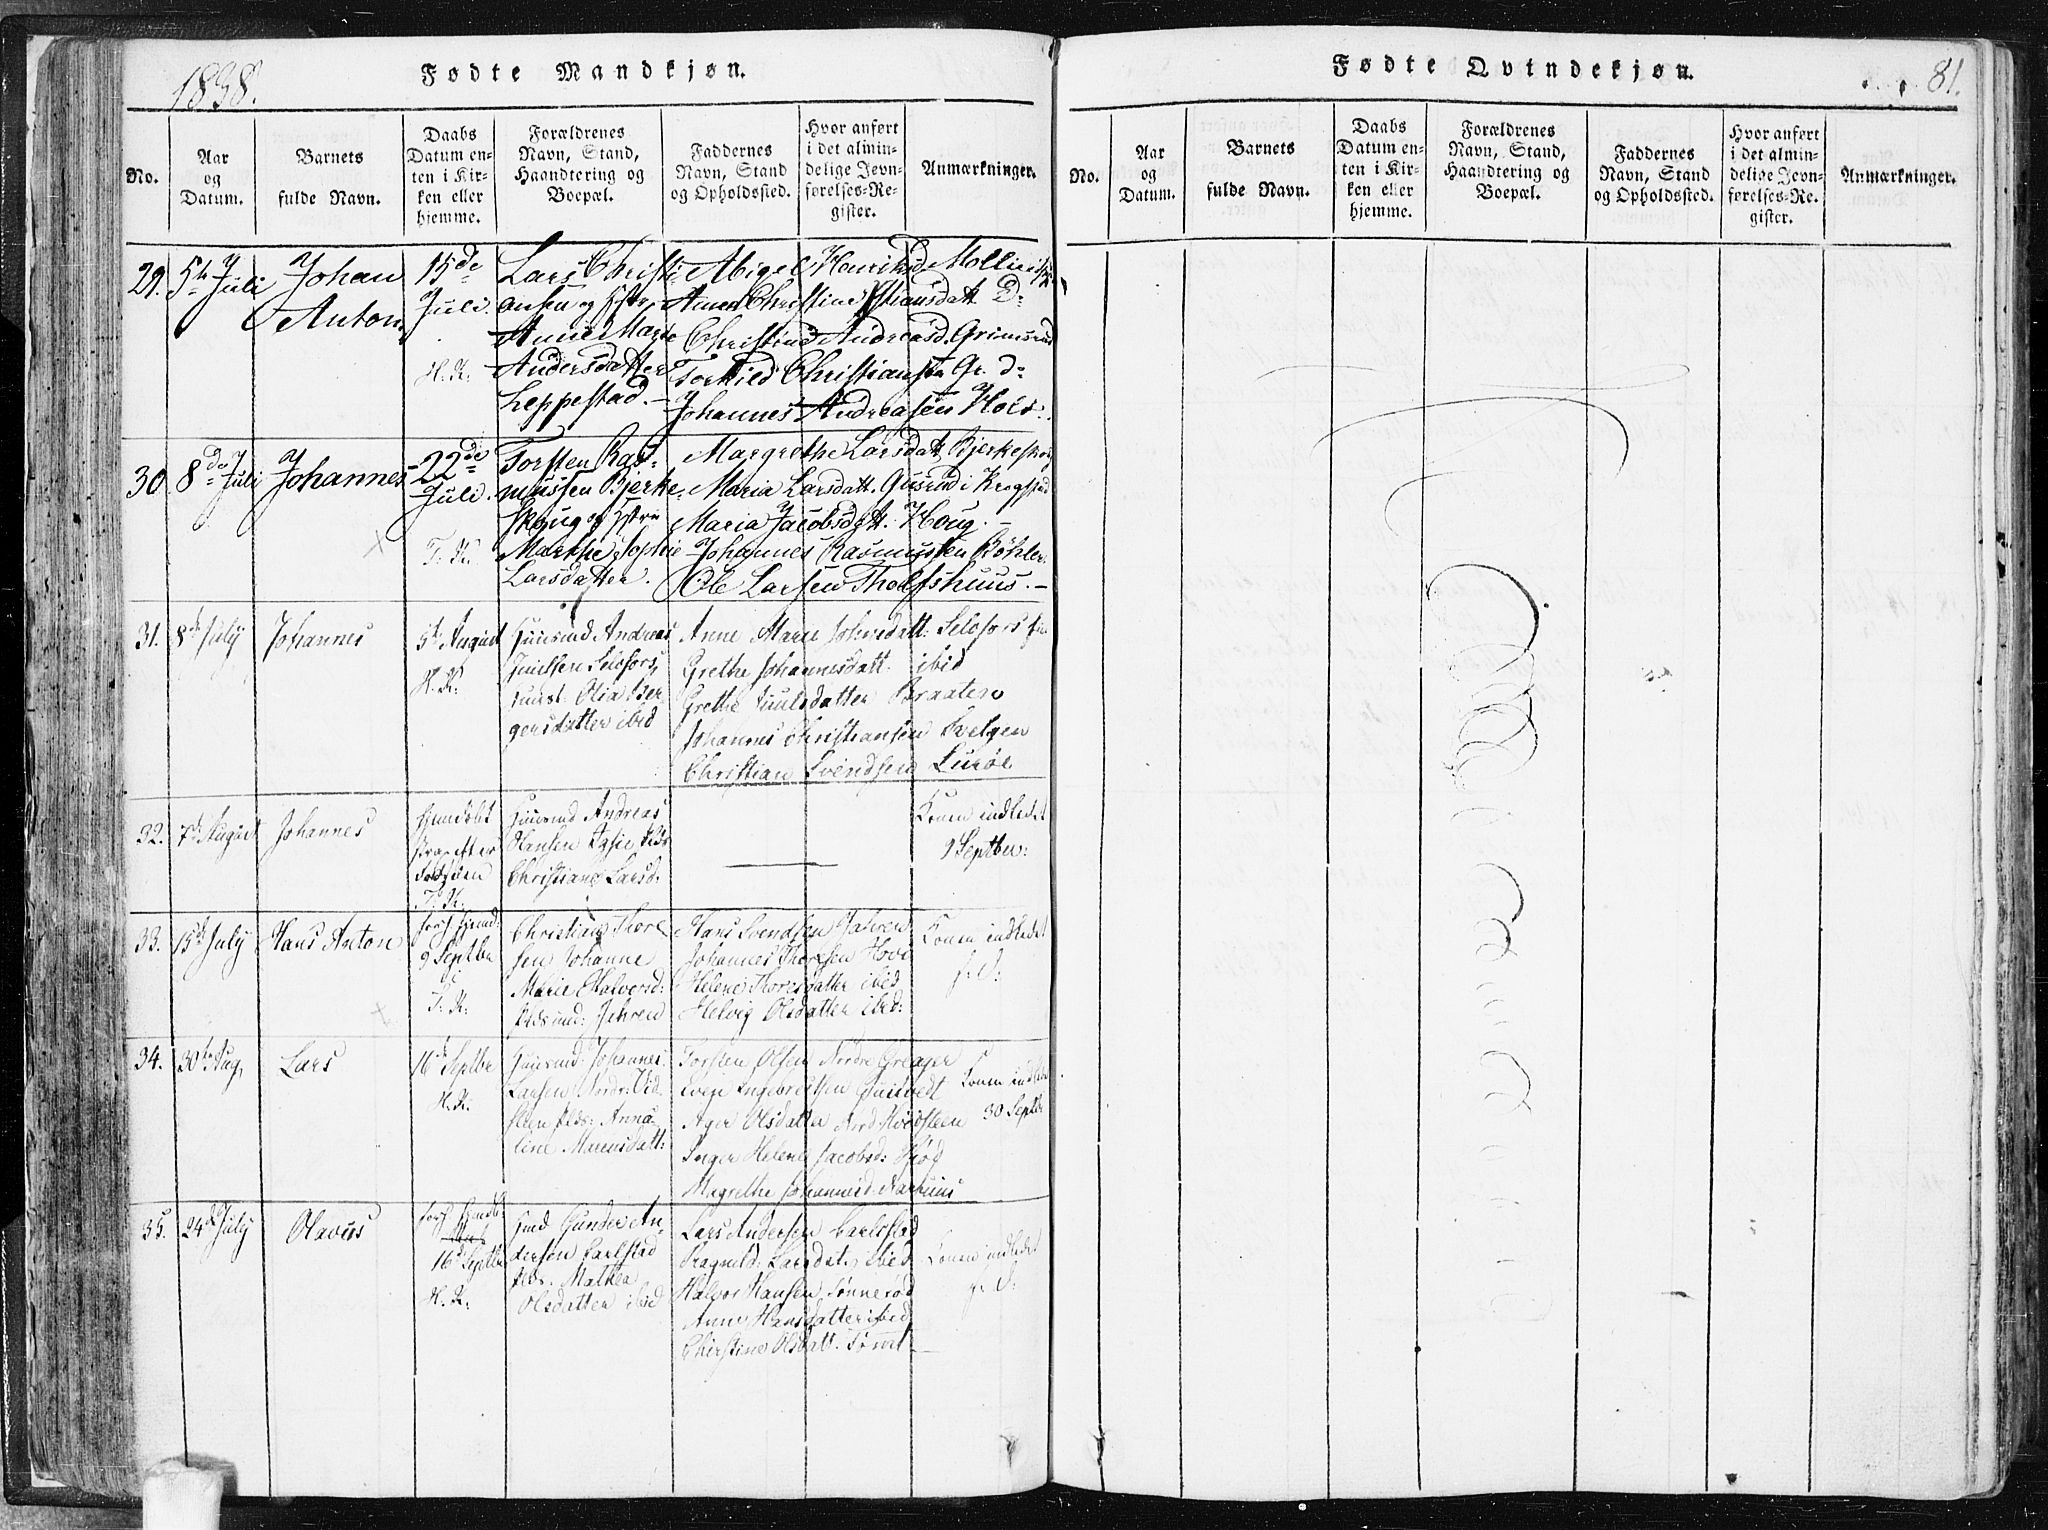 1838.
Fødte Mandkjøn.
No.
Aar
og
Datum.
Barnets
fulde Navn.
Daabs
Datum en-
ten i Kir-
ken eller
hjemme.
Forældrenes
Navn, Stand,
Haandtering og
Boepæl.
Faddernes
Navn, Stand
og Opholdssted.
Hvor anført
i det almin-
delige Jevn-
førelses-Re-
gister.
Anmærkninger.
29.
5te Juli
Johan
Anton
15de
Juli.
H. K.
Lars Christi-
ansen og Hstr
Anne Marie
Andersdatter
Leppestad.
Abigel Henriksd.
Anne Christine Christiansdatt. D-
Christine Andreasd. Grimsrud
Torkild Christiansen Gr. d-
Johannes Andreasen Hols
30.
8de Juli
Johannes
22de
Juli.
T. K.
Torsten Ras-
mussen Bjerke-
skoug og Hstr
Marthe Sophie
Larsdatter.
Margrethe Larsdatt. Bjerkeskoug
Maria Larsdatt. Gusrud i Krogstad
Maria Jacobsdatt. Houg.
Johannes Rasmussen Bøhler
Ole Larsen Tholfshuus.
31.
8de July
Johannes
5te August
H. K.
Huusmd Andreas
Juulsen Selofors
Olia Ber-
gersdatter ibid
Anne Marie Johnsdatt: Selofors
Grethe Johannesdatt. ibid
Grethe Juulsdatter Braaten
Johannes Christiansen Svelgen
Christian Svendsen
32.
7de August
Johannes
Hjemdøbt
strax efter
Fødselen
T. K.
Huusmd Andreas
Hansen
Christiane Larsd.
Konen indledet
9 Septber:
33.
15de July
Hans Anton
9 Septbr
i
T. K.
Christian Thore
sen Johanne
Marie Halvorsd:
Jahren
Hans Svendsen Jahren
Johannes Thoresen Hovi
Helene Thoresdatter ibid
Helvig Olsdatter ibid:
Konen indledet
s: D:
34.
30te Aug,
Lars
16de Septbr
H. K.
Huusmd: Johannes
Larsen Nordr: Vid-
Anna-
line Marcusdatt:
Torsten Olsen Nordre Greager
Even Ingebretsen
Ager Olsdatter Nord
Inger Helene Jacobsd:
Magrethe Johannesd: Aarhuus
Konen indledt
30 Septbr
35.
24de July
Olavus
16de Septbr
H. K.
Gunder An-
dersen Carlstad
Mathea
Olsdatter ibid
Lars Andersen Carlstad
Ragnild Larsdat, ibid
Halvor Hansen Tønnerød
Anne Hansdatter ibid
Christine Olsdatt.
Konen indledet
s: D:
Fødte Qvindekjøn.
81.
No.
Aar
og
Datum.
Barnets
fulde Navn.
Daabs
Datum en-
ten i Kir-
ken eller
hjemme.
Forældrenes
Navn, Stand,
Haandtering og
Boepæl.
Faddernes
Navn, Stand
og Opholdssted.
Hvor anført
i det almin-
delige Jevn-
førelses-Re-
gister.
Anmærkninger.